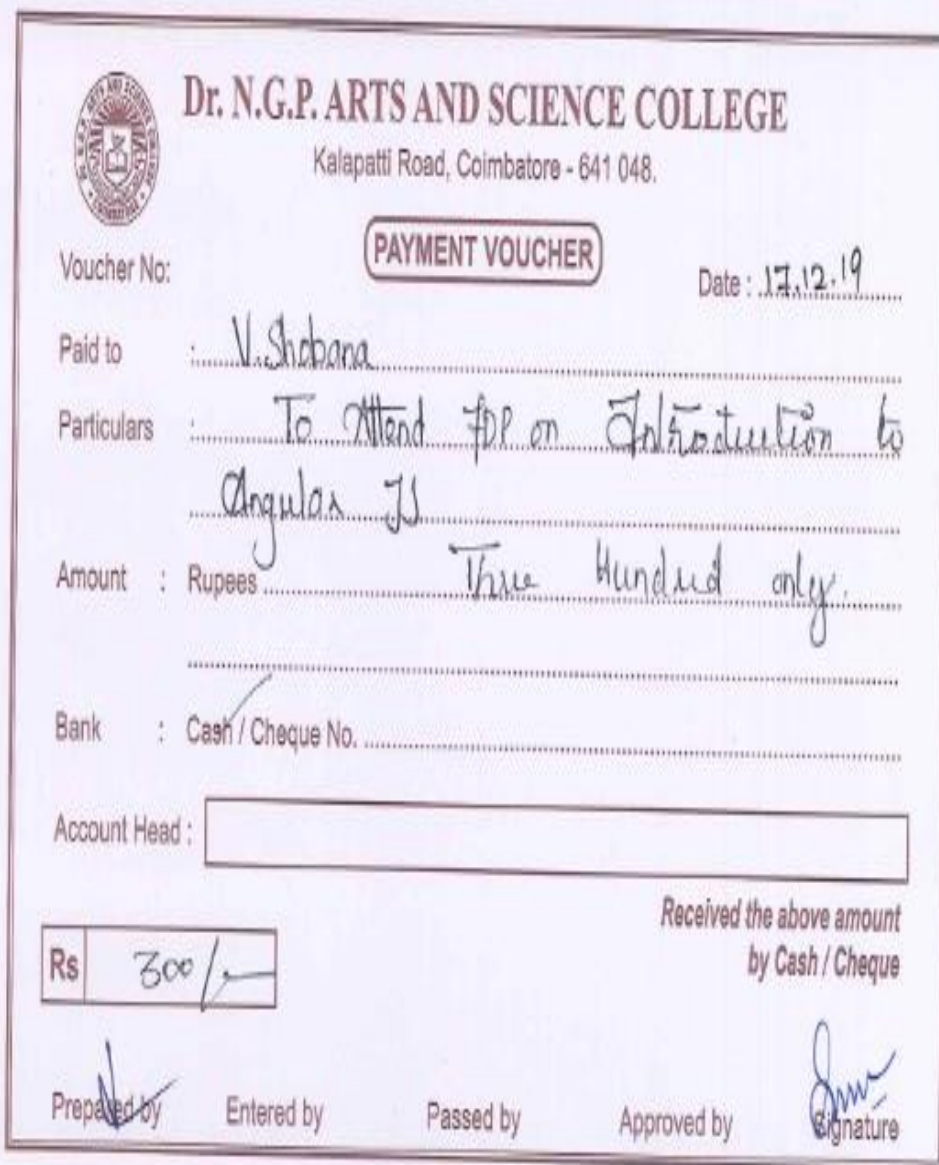 Dr. N.G.P. ARTS AND SCIENCE COLLEGE
Kalapatti Road, Coimbatore - 641 048.
PAYMENT VOUCHER
Voucher No:
Date : 17.12.19
Paid to : V. Shobana
Particulars : To Attend FDP on Introduction to
Angular JS
Amount : Rupees Three Hundred only.
Bank : Cash / Cheque No.
Account Head :
Received the above amount
by Cash / Cheque
Rs 300/-
Prepared by Entered by Passed by Approved by Signature